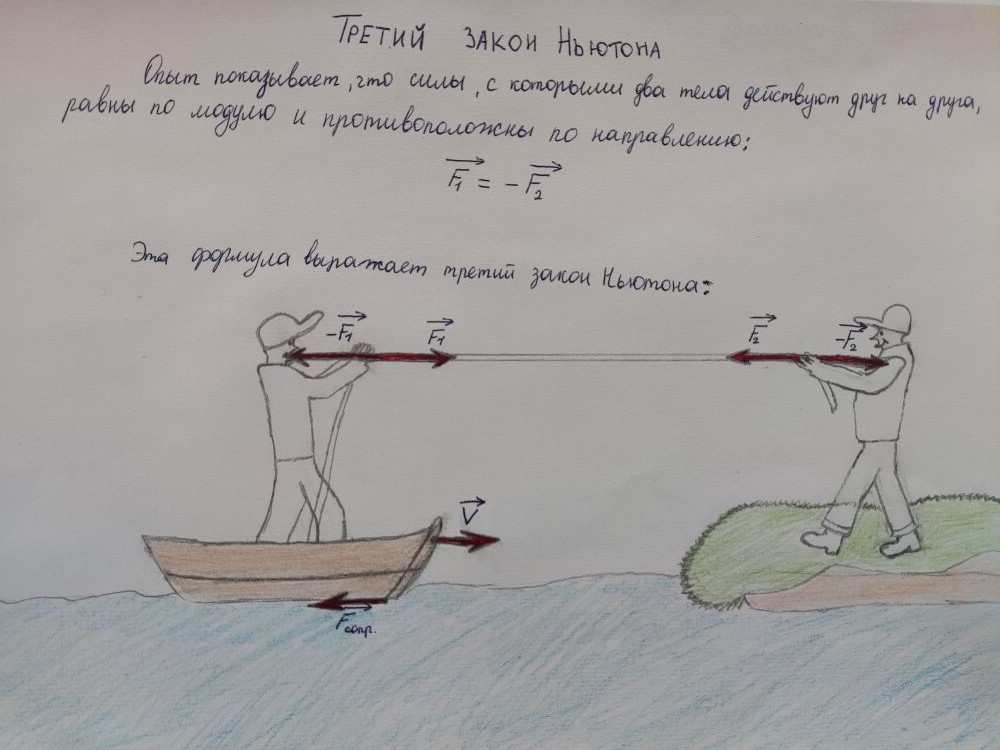 ТРЕТИЙ ЗАКОН НЬЮТОНА
Опыт показывает, что силы, с которыми два тела действуют друг на друга,
равны по модулю и противоположны по направлению:
F₁ = - F₂
Эта формула выражает третий закон Ньютона:
-F₁ F₁ F₂ -F₂
V
Fсопр.